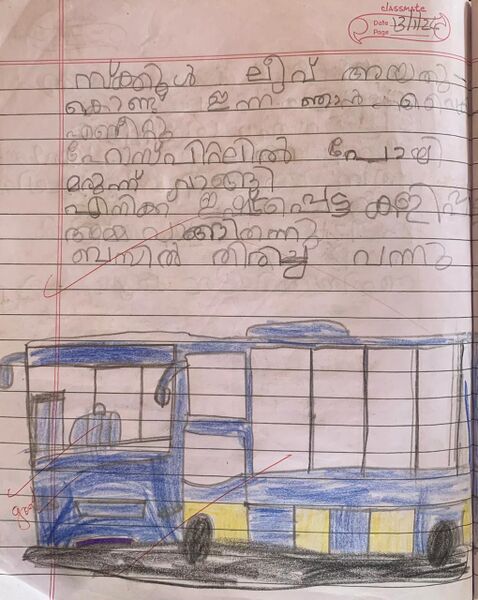 classmate
Date 13/1/24
Page
സ്ക്കൂൾ ലീവ് ആയതു
കൊണ്ട് ഇന്ന് ഞാൻ വൈ
എണീറ്റു
ഹോസ്പിറ്റലിൽ പോയി
മരുന്ന് വാങ്ങി
എനിക്ക് ഇഷ്ടപ്പെട്ട കളിപ്പ
അമ്മ വാങ്ങിതന്നു
ബസിൽ തിരിച്ചു വന്നു